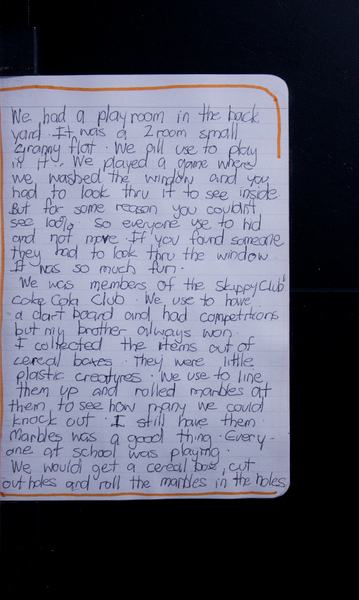 We had a playroom in the back
yard. It was a 2 room small
granny flat. We all use to play
in it. We played a game where
we washed the window and you
had to look thru it to see inside.
But for some reason you couldnt
see 100% so everyone use to hid
and not move. If you found someone
they had to look thru the window.
It was so much fun.
We was members of the Skippy Club
coka Cola Club. We use to have
a dart board and had competitions
but my brother always won.
I collected the items out of
cereal boxes. They were little
plastic creatures. We use to line
them up and rolled marbles at
them to see how many we could
knock out. I still have them
Marbles was a good thing. Every-
one at school was playing.
We would get a cereal box, cut
out holes and roll the marbles in the holes